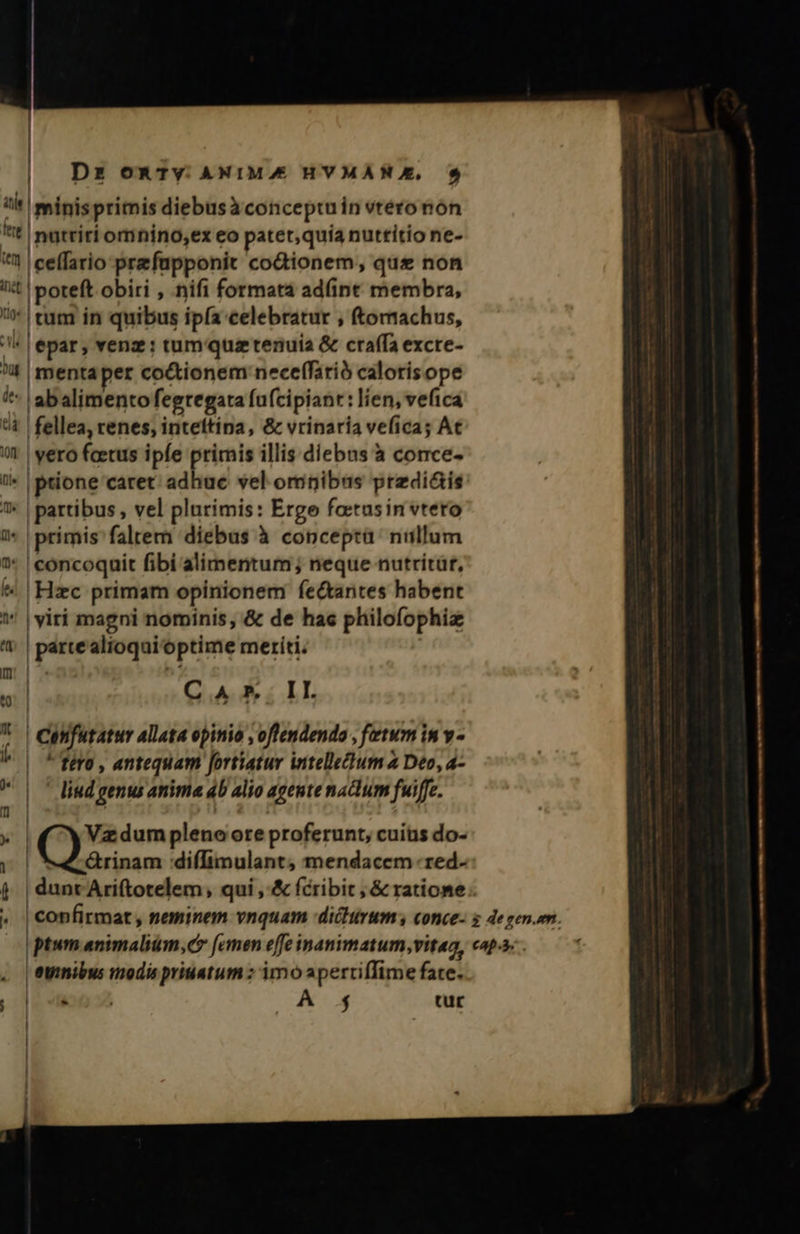 DE ORTV ANIMÆ HVMANÆ. 9
minis primis diebus à conceptu in vtero non
nutriri omnino, ex eo patet, quia nutritio ne-
ceſſario præſupponit coctionem, quæ non
poteſt obiri, niſi formata adſint membra,
tum in quibus ipſa celebratur, ſtomachus,
epar, venæ: tum quæ tenuia & craſſa excre-
menta per coctionem neceſſariò caloris ope
ab alimento ſegregata ſuſcipiant: lien, veſica
fellea, renes, inteſtina, & vrinaria veſica; At
vero fœtus ipſe primis illis diebus à conce-
ptione caret adhuc vel omnibus prædictis
partibus, vel plurimis: Ergo fœtus in vtero
primis ſaltem diebus à conceptu nullum
concoquit ſibi alimentum; neque nutritur.
Hæc primam opinionem ſectantes habent
viri magni nominis, & de hac philoſophiæ
parte alioqui optime meriti.
CAP. II.
Confutatur allata opinio, oſtendendo, fœtum in v-
tero, antequam ſortiatur intellectum à Deo, a-
liud genus animæ ab alio agente nactum fuiſſe.
Qvædum pleno ore proferunt, cuius do-
ctrinam diſſimulant, mendacem red-
dunt Ariſtotelem, qui, & ſcribit, & ratione
confirmat, neminem vnquam dicturum, conce- 5 de gen. an.
ptum animalium, & ſemen eſſe inanimatum, vitaq, cap. 3.
omnibus modis priuatum: imo apertiſſime fate-
A 5 tur